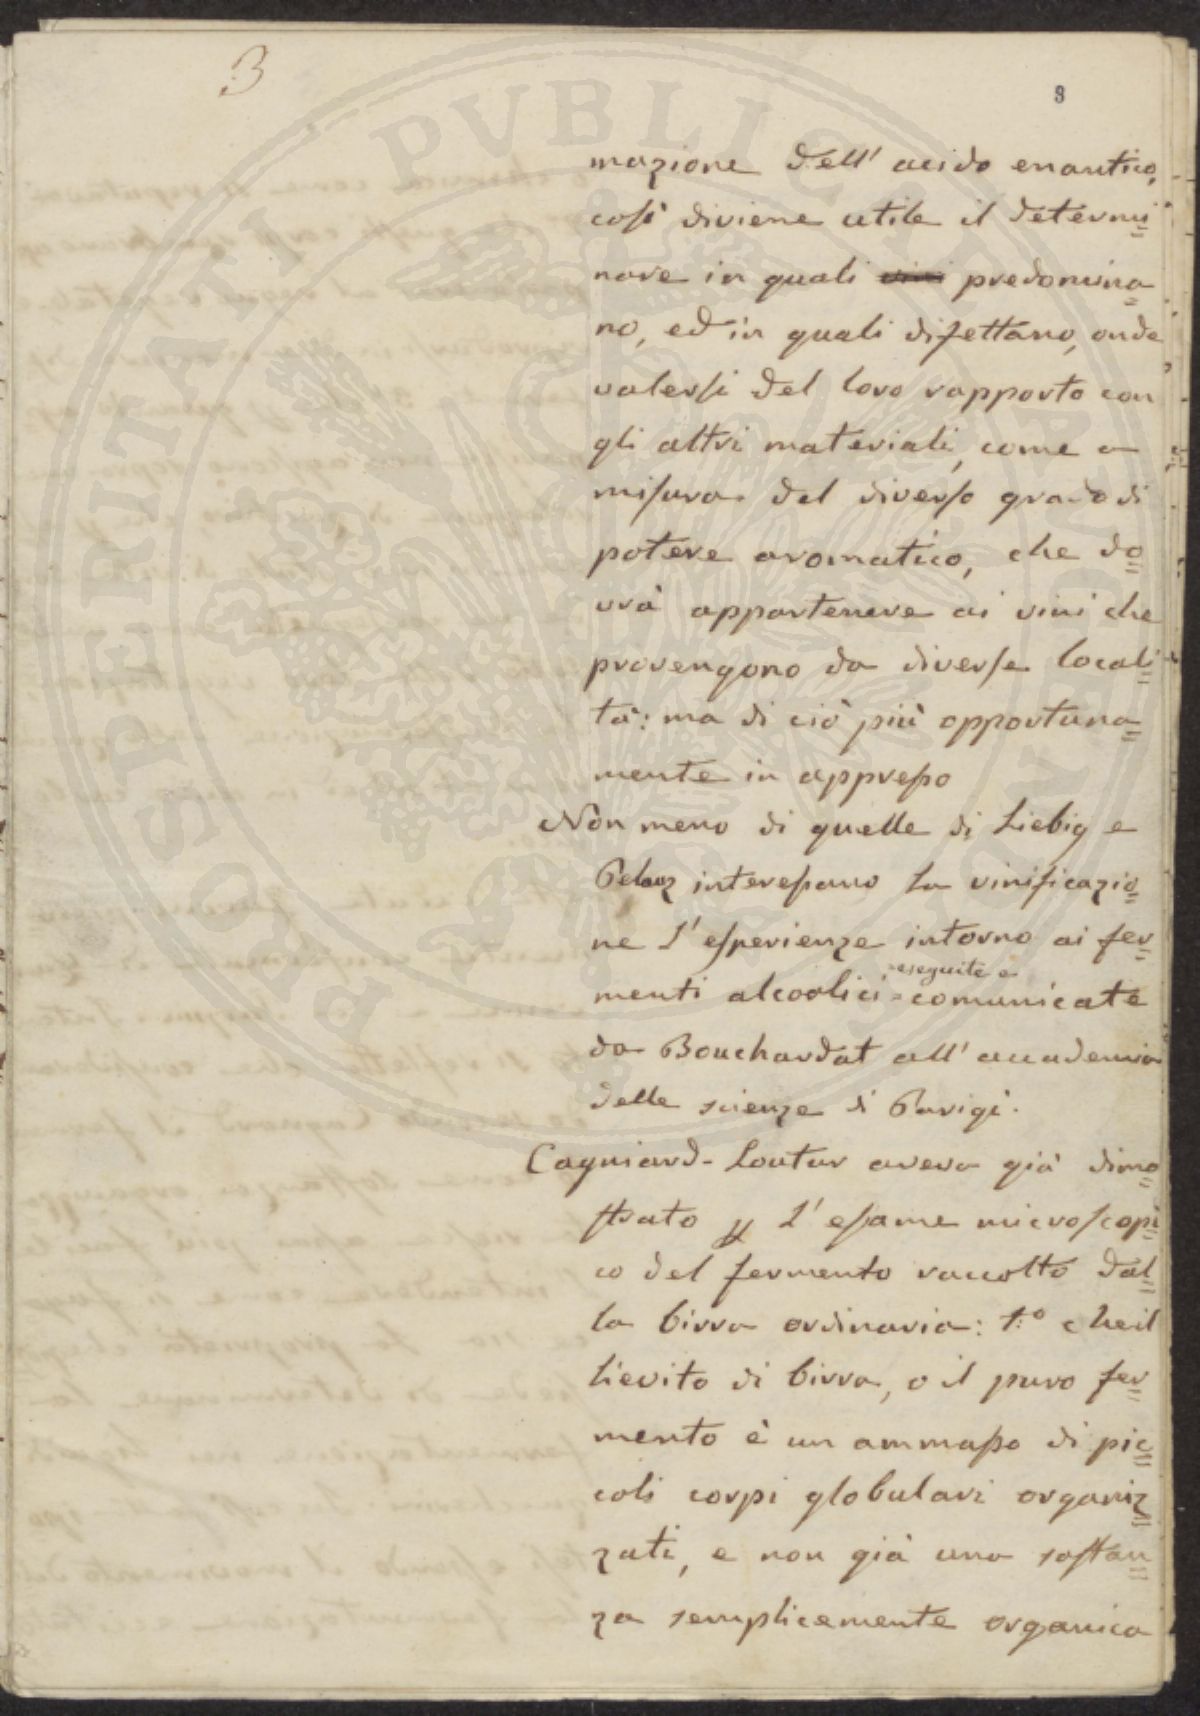 3
3
mazione dell' acido enantico,
così diviene utile il determi=
nare in quali vini predomina=
no, ed in quali difettano, onde
valersi del loro rapporto con
gli altri materiali, come a
misura del diverso grado di
potere aromatico, che do=
vrà appartenere ai vini che
provengono da diverse locali=
tà: ma di ciò più opportuna=
mente in appresso
Non meno di quelle di Liebig e
Pelouz interessano la vinificazio=
ne l'esperienze intorno ai fer=
menti alcoolici eseguite e comunicate
da Bouchardat all' accademia
delle scienze di Parigi.
Cagniard-Loutur aveva già dimo=
strato p l' esame microscopi=
co del fermento raccolto dal=
la birra ordinaria: 1.° che il
lievito di birra, o il puro fer=
mento è un ammasso di pic=
coli corpi globulari organiz=
zati, e non già una sostan=
za semplicemente organica
PROSPERITATI PVBLICAE AVGENDAE